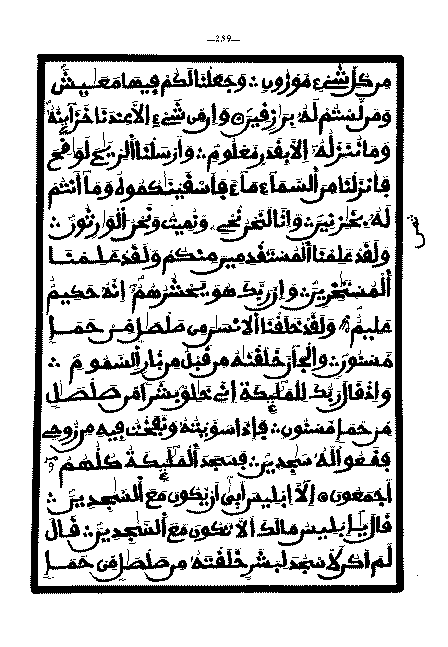 —259—
من كل شيء موزون ∴ وجعلنا لكم فيها معايش
ومن لستم له برازقين ∴ وإن من شيء إلا عندنا خزائنه
وما ننزله إلا بقدر معلوم ∴ وأرسلنا الريح لوافح
فأنزلنا من السماء ماء فأسقينكموه وما أنتم
له بخزنين ∴ وإنا لنحن نحي ونميت ونحن الوارثون ∴
ولقد علمنا المستقدمين منكم ولقد علمنا
المستخرين ∴ وإن ربك هو يحشرهم إنه حكيم
عليم ∴ ولقد خلقنا الإنسن من صلصل من حما
مسنون ∴ والجان خلقنه من قبل من نار السموم ∴
وإذ قال ربك للملئكة إني خلق بشرا من صلصل
من حما مسنون ∴ فإذا سويته ونفخت فيه من روحي
فقعوا له سجدين ∴ فسجد الملئكة كلهم
أجمعون ∴ إلا إبليس أبى أن يكون مع السجدين ∴
قال يإبليس مالك ألا تكون مع السجدين ∴ قال
لم أكن لأسجد لبشر خلقته من صلصل من حما